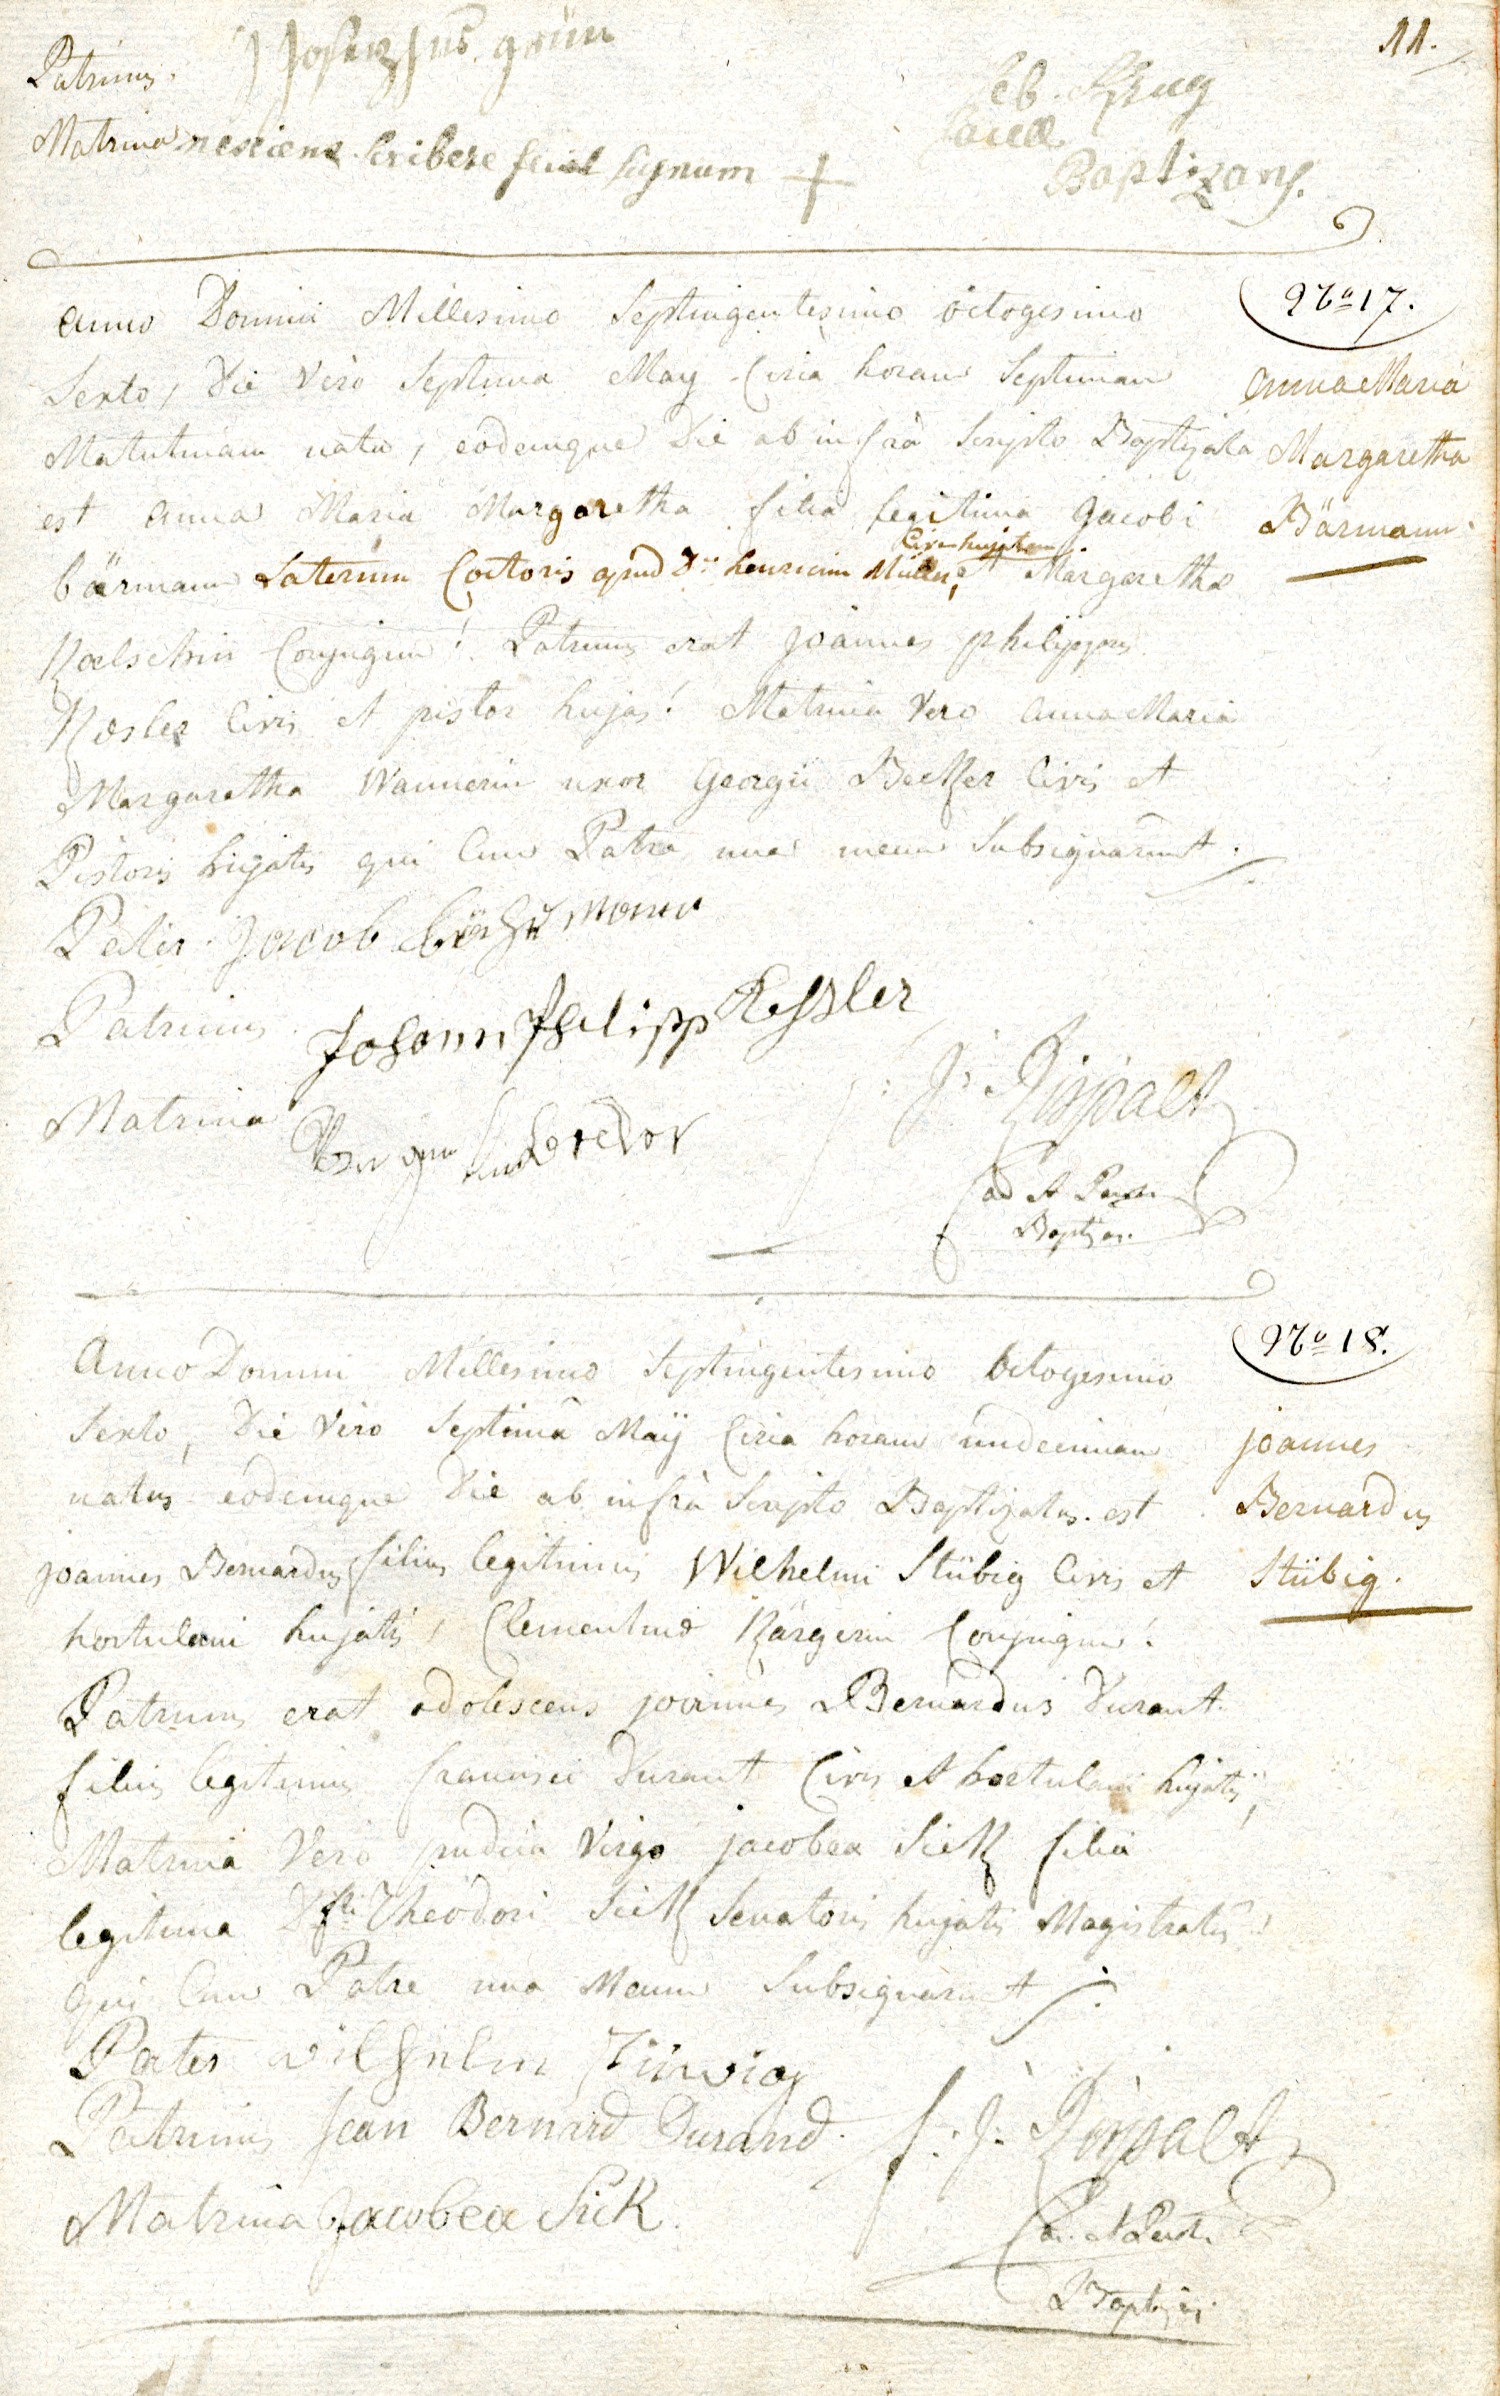 11.
Patrinus. Josephus grün
Seb. Krug
Matrina nesciens scribere fecit signum +
Sacell.
Baptizans.
No 17.
Anno Domini Millesimo Septingentesimo octogesimo
Sexto, Die Vero Septima May Circa horam Septimam
Matutinam nata, eodemque Die ab infrà Scripto Baptizata
est Anna Maria Margaretha filia legitima Jacobi
bärmann Laterum Coctoris apud Dm henricum Müller, Civem hujatem et Margarethæ
Kælschin Conjugum! Patrinus erat joannes philippus
Kesler Civis et pistor hujas! Matrina Vero Anna Maria
Margaretha Wannerin uxor Georgii Becker Civis et
Pistoris hujatis qui Cum Patre una mecum Subsignarunt.
Anna Maria
Margaretha
Bärmann.
Pater Jacob
Patrinus Johann Philipp Kessler
Matrina
Baptizans.
No 18.
Anno Domini Millesimo Septingentesimo Octogesimo
Sexto, Die Vero Septima Maÿ Circa horam undecimam
natus eodemque Die ab infrà Scripto Baptizatus est
joannes Bernardus filius legitimus Wilhelmi Stübig Civis et
hortulani hujatis, Clementinæ Kärgerin Conjugum!
Patrinus erat adolescens joannes Bernardus Durant
filius legitimus francisci Durant Civis et hortulani hujatis,
Matrina Vero pudica Virgo jacobea Sick filia
legitima Theodori Sick Senatoris hujatis Magistratûs!
qui Cum Patre una Mecum Subsignarunt
joannes
Bernardus
Stübig.
Pater wilhelm
Patrinus Jean Bernard Durand.
Matrina Jacobea Sick.
Baptizans